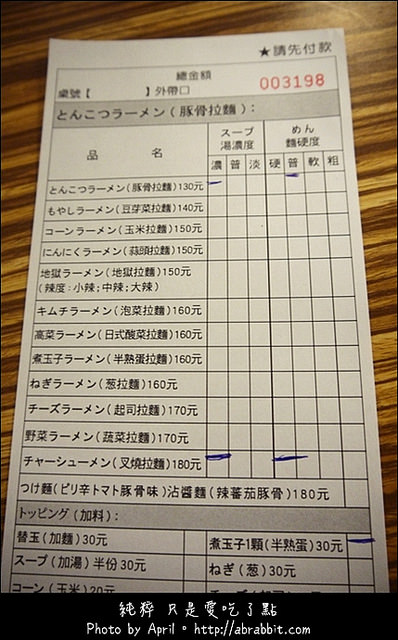 ★請先付款
總金額
桌號【 】外帶口
003198
とんこつラーメン(豚骨拉麵):
品 名
スープ
湯濃度
めん
麵硬度
濃 普 淡 硬 普 軟 粗
とんこつラーメン(豚骨拉麵)130元
もやしラーメン(豆芽菜拉麵)140元
コーンラーメン(玉米拉麵)150元
にんにくラーメン(蒜頭拉麵)150元
地獄ラーメン(地獄拉麵)150元
(辣度:小辣;中辣;大辣)
キムチラーメン(泡菜拉麵)160元
高菜ラーメン(日式酸菜拉麵)160元
煮玉子ラーメン(半熟蛋拉麵)160元
ねぎラーメン(葱拉麵)160元
チーズラーメン(起司拉麵)170元
野菜ラーメン(蔬菜拉麵)170元
チャーシューメン(叉燒拉麵)180元
つけ麵(ピリ辛トマト豚骨味)沾醬麵(辣蕃茄豚骨)180元
トッピング(加料):
替玉(加麵)30元
煮玉子1顆(半熟蛋)30元
スープ(加湯)半份30元
ねぎ(葱)30元
コーン(玉米)20元
純粹 只是愛吃了點
Photo by April。http://abrabbit.com